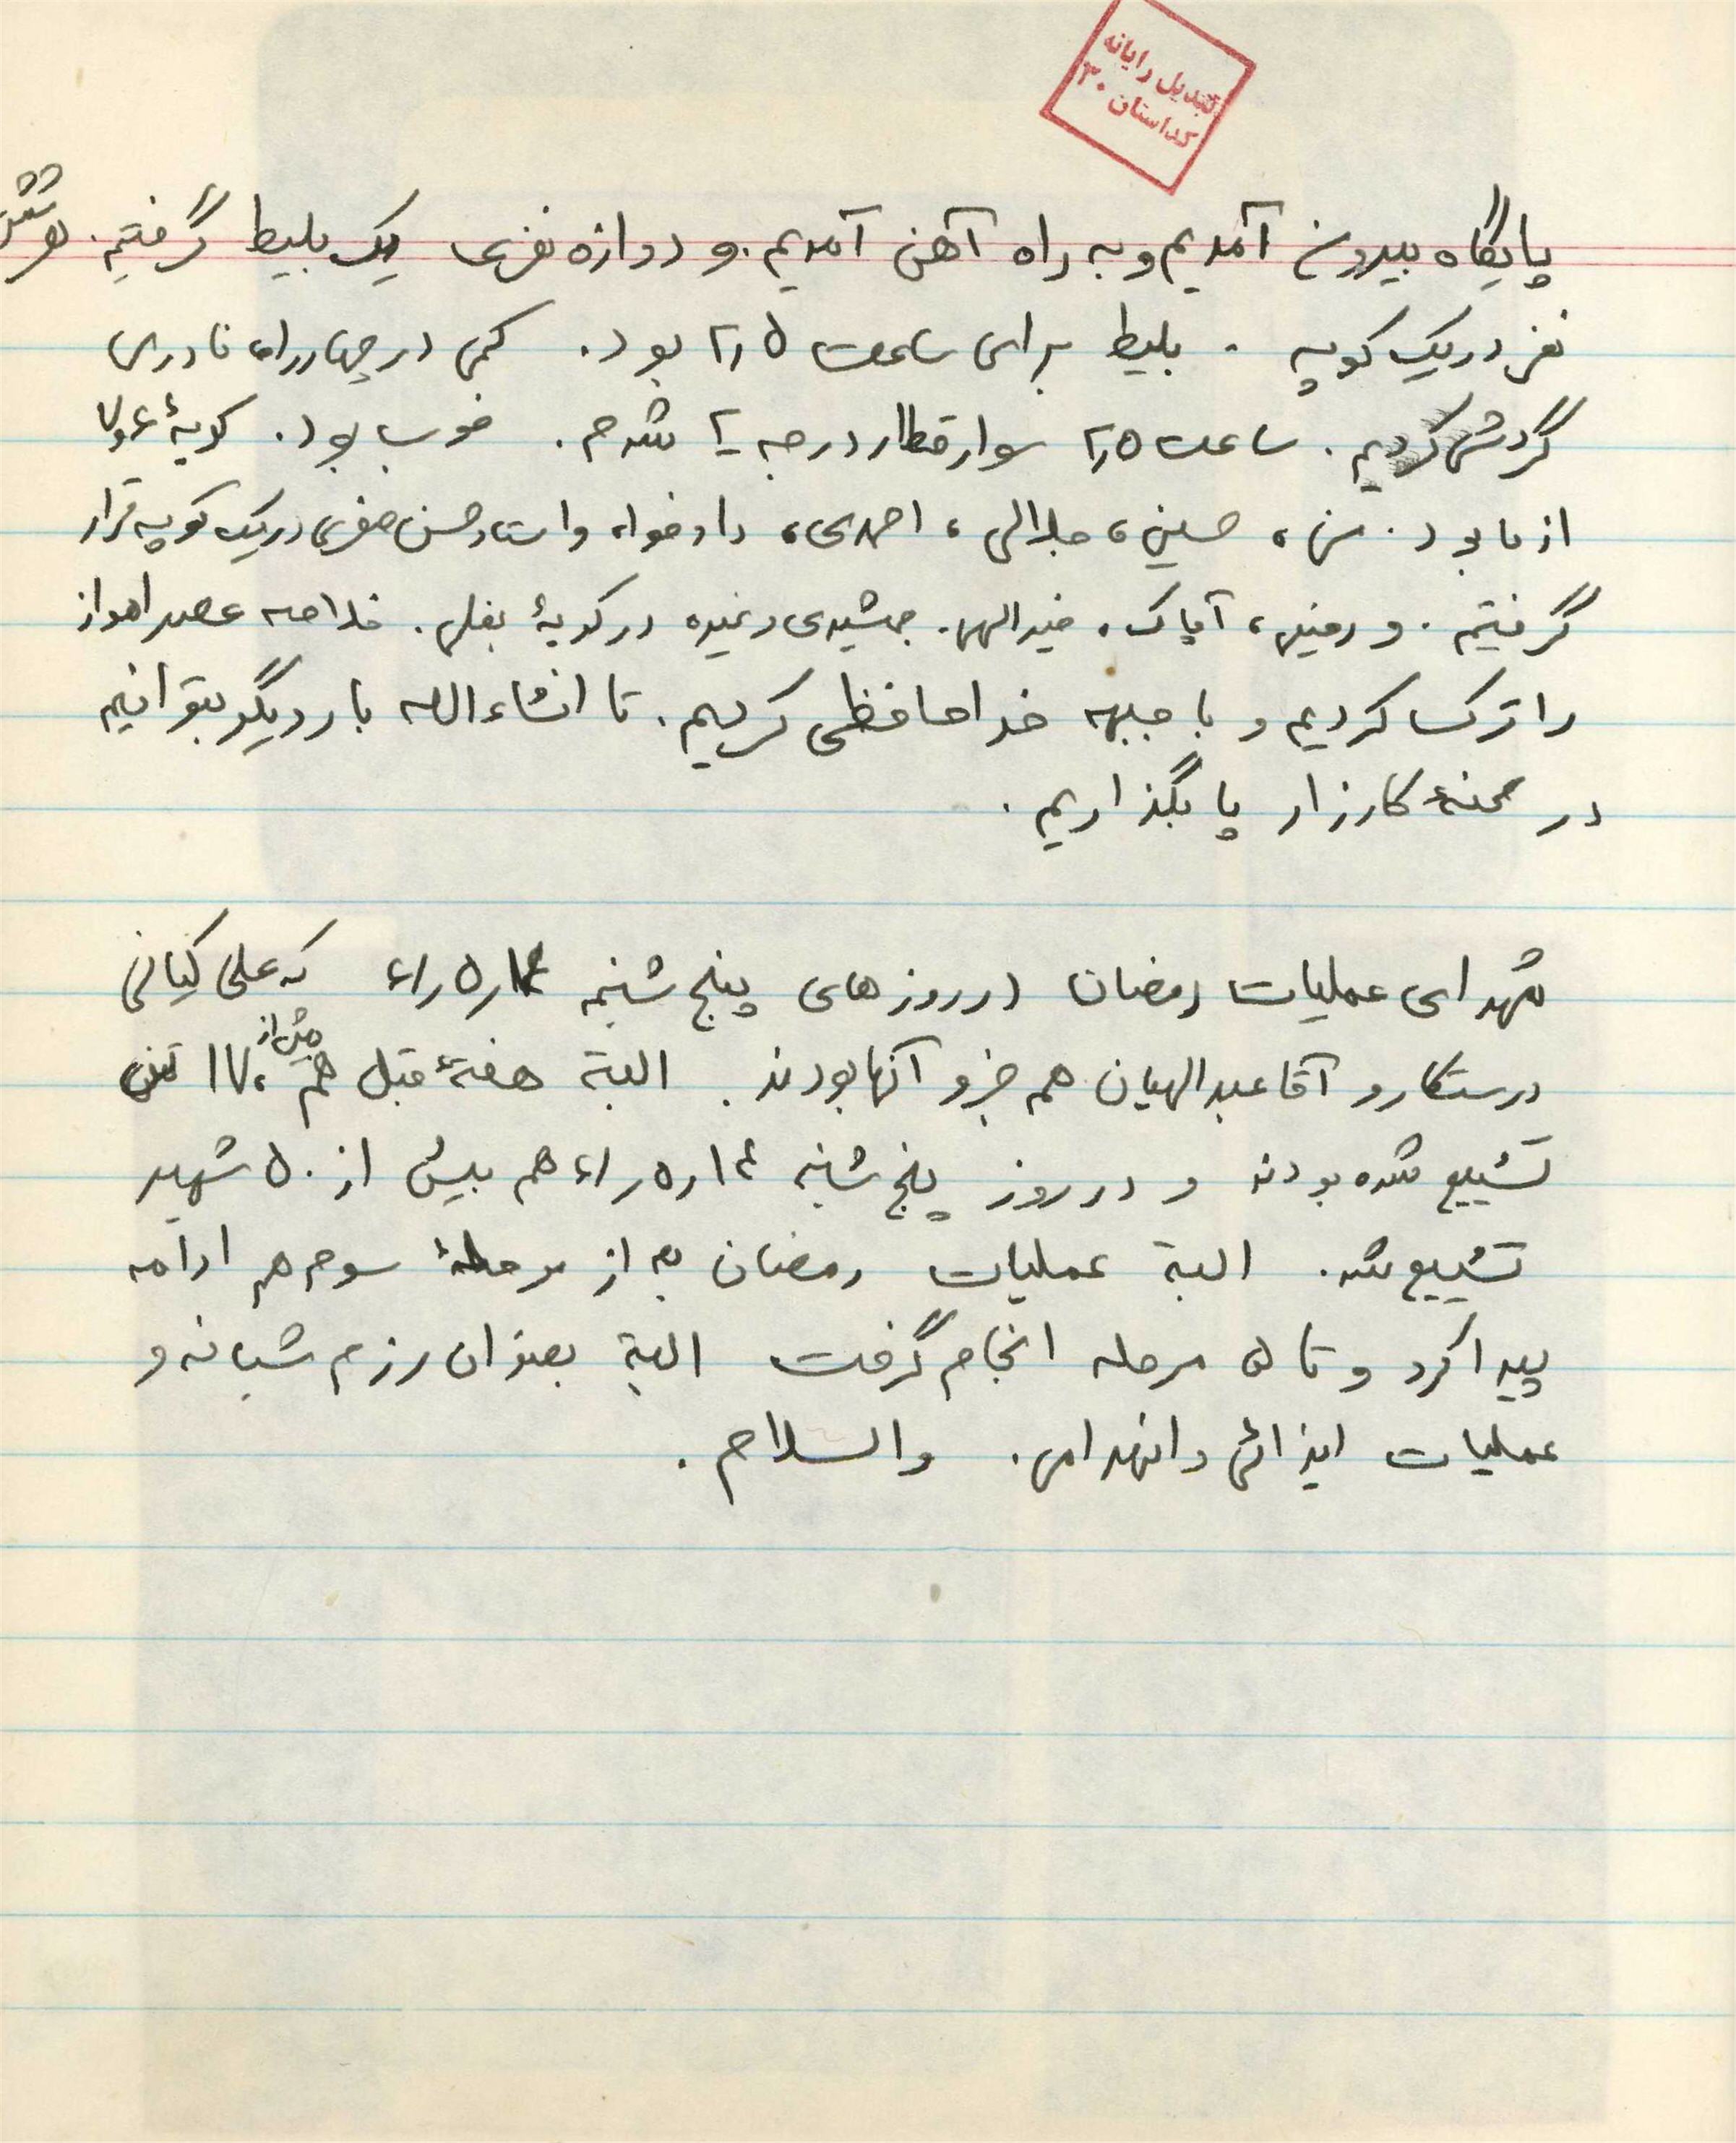 تبدیل رایانه
کداستان ۳۰
پایگاه بیرون آمدیم و به راه آهن آمدیم. و دوازده نفری یک بلیط گرفتیم. هر شش
نفر در یک کوپه . بلیط برای ساعت ۲٫۵ بود. کمی در چهارراه نادری
گردش کردیم. ساعت ۲٫۵ سوار قطار درجه ۲ شدم. خوب بود. کوپهٔ ۶ و ۷
از ما بود. من، حسین، جلالی، احمدی، دادخواه و استاد حسن صفری در یک کوپه قرار
گرفتیم. و رمینی، آپاک، خیرالهی. جمشیدی و غیره در کوپهٔ بغلی. خلاصه عصر اهواز
را ترک کردیم و با جبهه خداحافظی کردیم. تا انشاءالله بار دیگر بتوانیم
در صحنهٔ کارزار پا بگذاریم.
شهدای عملیات رمضان در روزهای پنج شنبه ۶۱٫۵٫۱۴ که علی کیانی
درستکار و آقا عبدالهیان هم جزو آنها بودند. البته هفتهٔ قبل هم بیش از ۱۷۰ تن
تشییع شده بودند و در روز پنج شنبه ۶۱٫۵٫۱۴ هم بیش از ۵۰ شهید
تشییع شد. البته عملیات رمضان به از مرحلهٔ سوم هم ادامه
پیدا کرد و تا ۵ مرحله انجام گرفت البته بعنوان رزم شبانه و
عملیات ایذائی و انهدامی. والسلام.